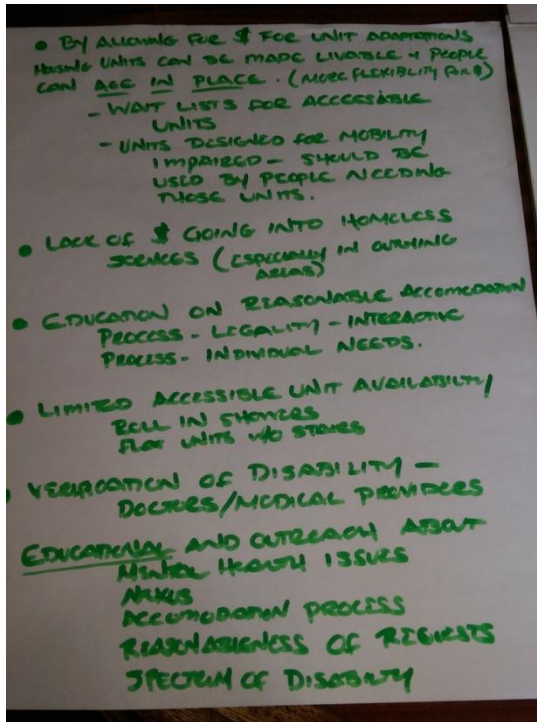 • BY ALLOWING FOR $ FOR UNIT ADAPTATIONS
HOUSING UNITS CAN BE MADE LIVABLE + PEOPLE
CAN AGE IN PLACE. (MORE FLEXIBILITY FOR $)
- WAIT LISTS FOR ACCESSABLE
UNITS
- UNITS DESIGNED FOR MOBILITY
IMPAIRED - SHOULD BE
USED BY PEOPLE NEEDING
THOSE UNITS.
• LACK OF $ GOING INTO HOMELESS
SERVICES (ESPECIALLY IN OUTLYING
AREAS)
• EDUCATION ON REASONABLE ACCOMODATION
PROCESS - LEGALITY - INTERACTIVE
PROCESS - INDIVIDUAL NEEDS.
• LIMITED ACCESSIBLE UNIT AVAILABILITY
ROLL IN SHOWERS
FLAT UNITS W/O STAIRS
• VERIFICATION OF DISABILITY -
DOCTORS/MEDICAL PROVIDERS
EDUCATIONAL AND OUTREACH ABOUT
MENTAL HEALTH ISSUES
NEXUS
ACCOMODATION PROCESS
REASONABLENESS OF REQUESTS
SPECTRUM OF DISABILITY